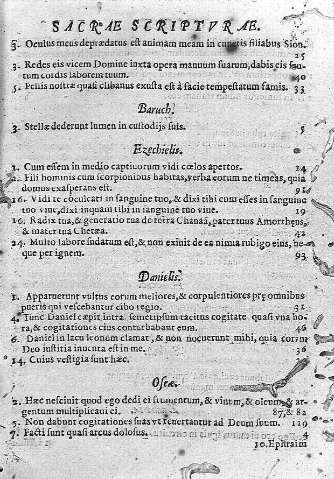 SACRAE SCRIPTVRAE.
3. Oculus meus deprædatus est animam meam in cunctis filiabus Sion.
25
3. Reddes eis vicem Domine iuxta opera manuum suarum, dabis eis scu-
tum cordis laborem tuum. 40
5. Pellis nostra quasi clibanus exusta est à facie tempestatum famis. 33
Baruch.
3. Stellæ dederunt lumen in custodijs suis. 5
Ezechielis.
1. Cum essem in medio captiuorum vidi cœlos apertos. 24
2. Fili hominis cum scorpionibus habitas, verba eorum ne timeas, quia
domus exasperans est. 91
16. Vidi te cõculcari in sanguine tuo, & dixi tibi cum esses in sanguine
tuo viue, dixi inquam tibi in sanguine tuo viue. 19
16. Radix tua, & generatio tua de terra Chanaã, pater tuus Amorrheus,
& mater tua Chetæa. 42
24. Multo labore sudatum est, & non exiuit de ea nimia rubigo eius, ne-
que per ignem. 93
Danielis.
1. Apparuerunt vultus eorum meliores, & corpulentiores præ omnibus
pueris qui vescebantur cibo regio. 31
4. Tunc Daniel cæpit intra semetipsum tacitus cogitare quasi vna ho-
ra, & cogitationes eius conturbabant eum. 46
6. Daniel in lacu leonum clamat, & non nocuerunt mihi, quia coram
Deo iustitia inuenta est in me. 36
14. Cuius vestigia sunt hæc.
Oseæ.
2. Hæc nesciuit quod ego dedi ei frumentum, & vinum, & oleum, & ar-
gentum multiplicaui ei. 87, & 82
5. Non dabunt cogitationes suas vt reuertantur ad Deum suum. 119
7. Facti sunt quasi arcus dolosus. 4
10. Ephraim